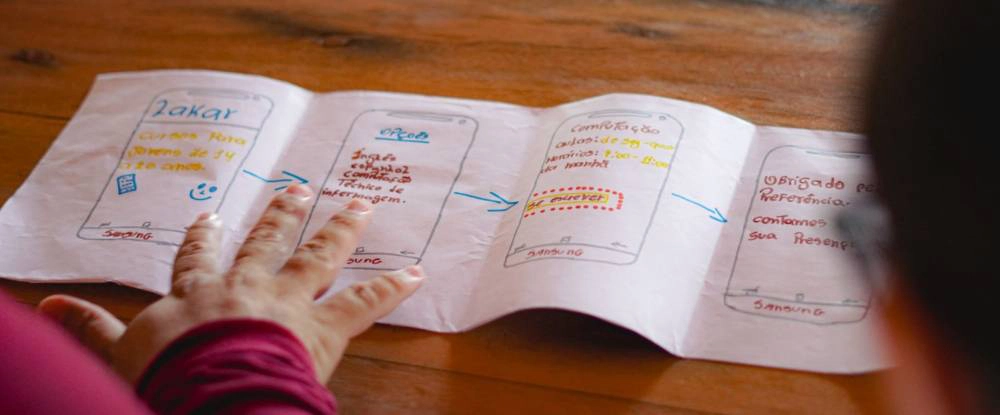 Zakar
Cursos Para
Jovens de 14
a 20 anos.
SAMSUNG
OPÇões
Inglês
espanhol
computação
Técnico de
infermagem.
SUNG
Computação
aulas: de seg-qua
Horários: 9:00 - 11:00
da manhã
se escrever
SAMSUNG
Obrigado pe
Preferência.
contamos
sua Presenç
SAMSUNG